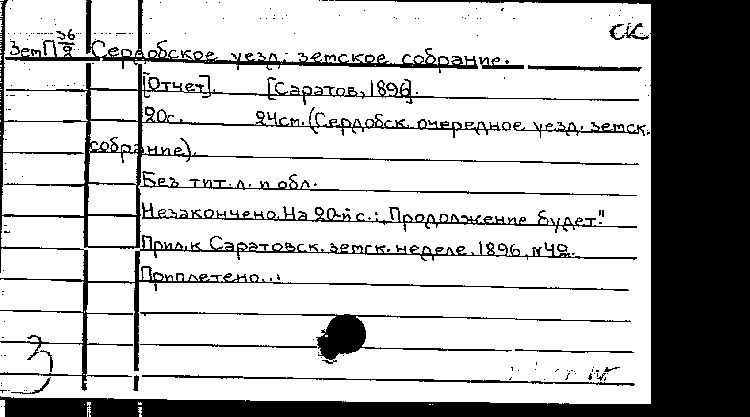 СК
36
ЗемП 2 Сердобское уезд. земское собрание.
[Отчет]. [Саратов, 1896].
20с. 24см. (Сердобск. очередное уезд. земск.
собрание).
Без тит.л. и обл.
Незакончено. На 20-й с.: "Продолжение будет."
Прил. к Саратовск. земск. неделе. 1896, №42.
Приплетено..:
3